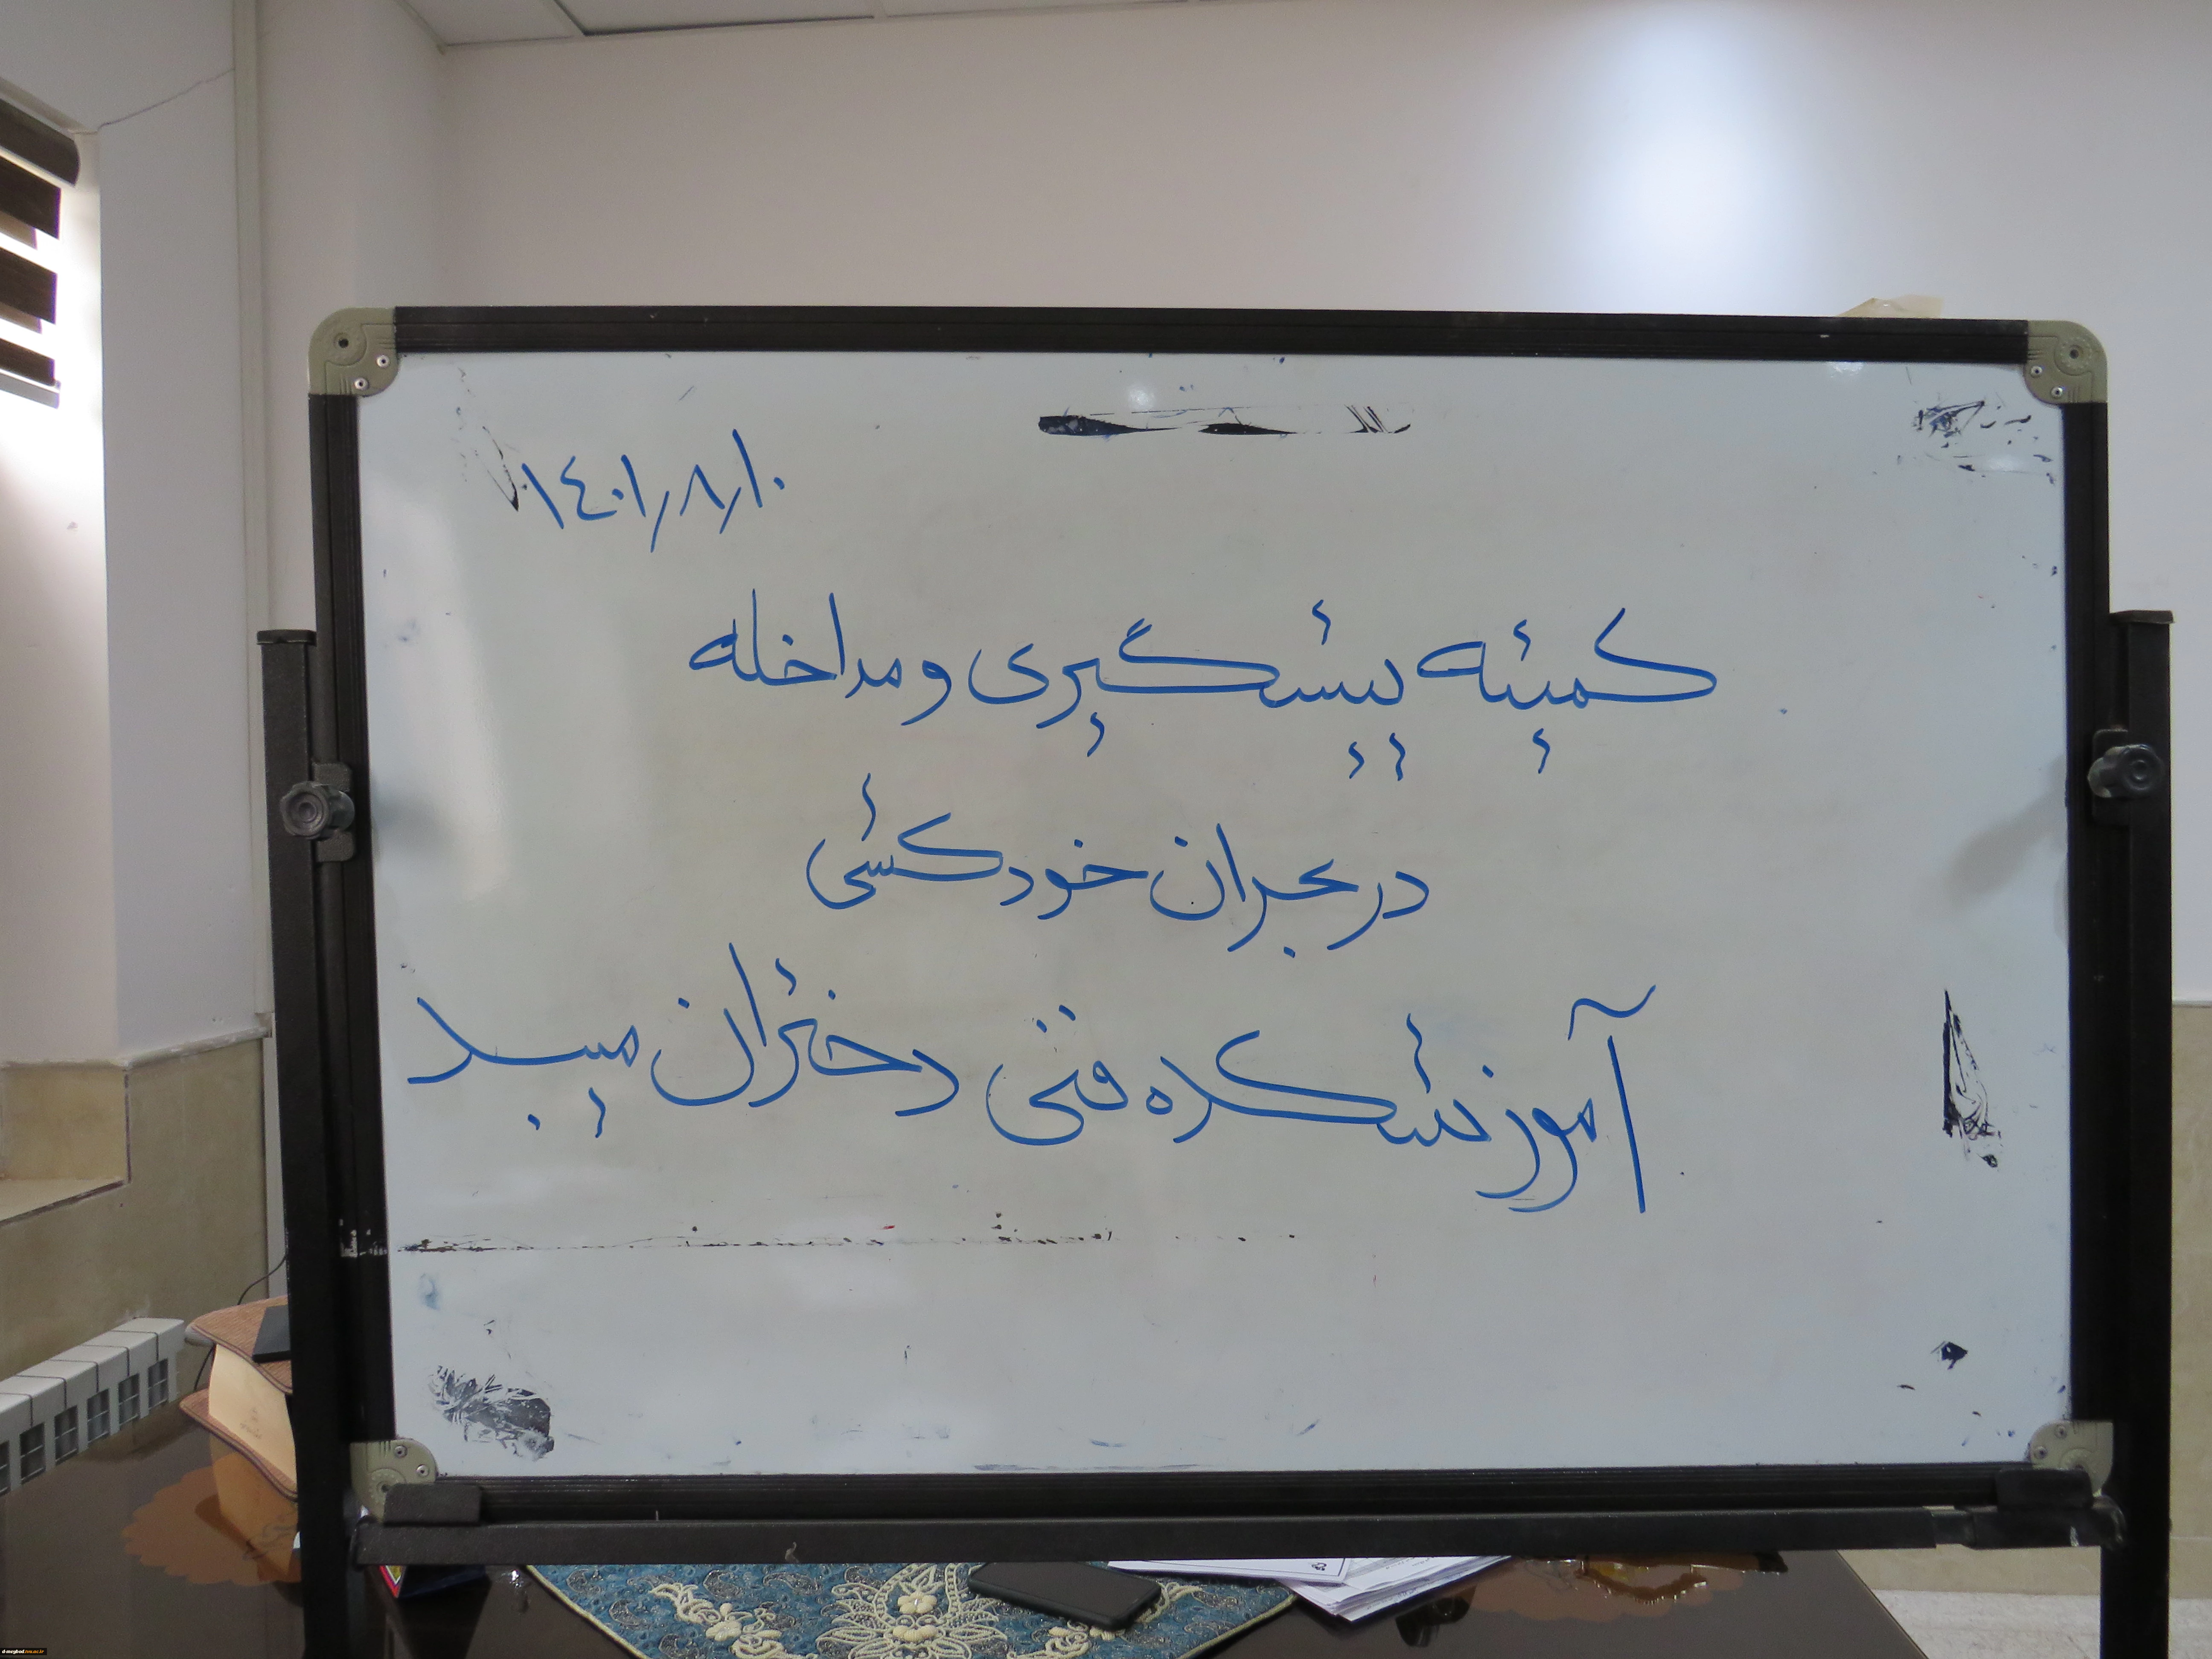 ۱۴۰۱/۸/۱۰
کمیته پیشگیری و مداخله
در بحران خودکشی
آموزشکده فنی دختران میبد
d-meybod.tvu.ac.ir